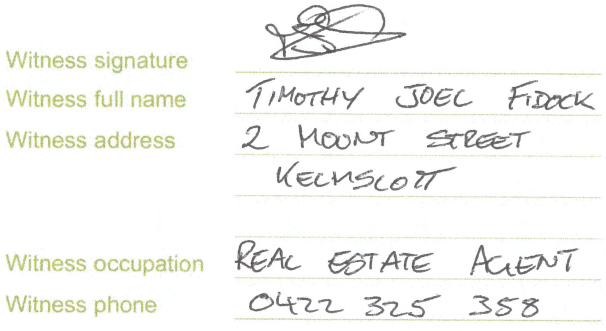 Witness signature
Witness full name TIMOTHY JOEL FIDOCK
Witness address 2 MOUNT STREET
KELMSCOTT
Witness occupation REAL ESTATE AGENT
Witness phone 0422 325 358